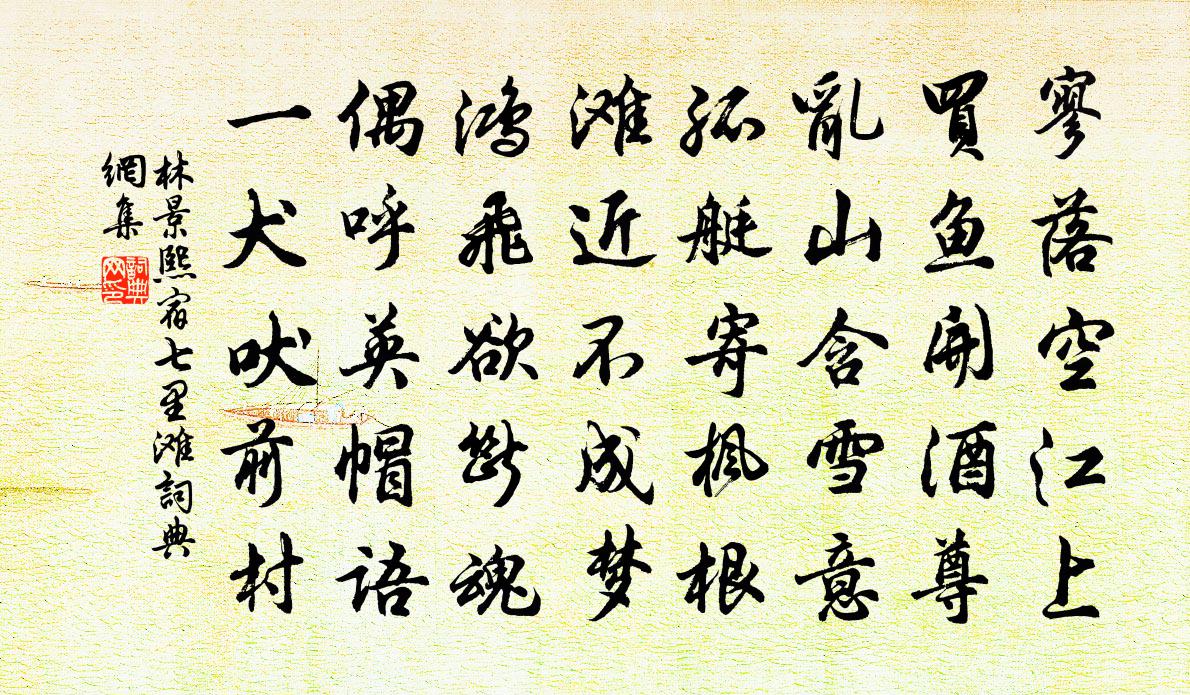 寥落空江上
買鱼開酒尊
亂山含雪意
孤艇寄枫根
滩近不成梦
鸿飛欲断魂
偶呼英帽语
一犬吠前村
林景熙宿七里滩詞典
網集
詞典
网印